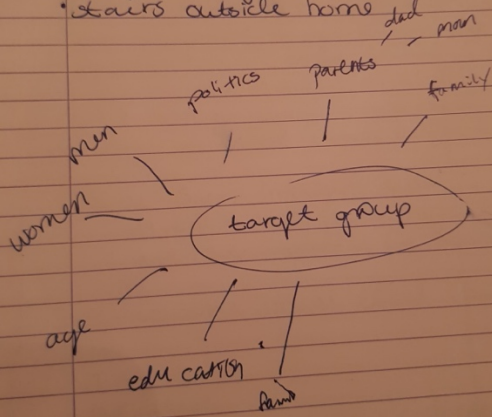 • stairs outside home
dad
mom
parents
politics
family
men
women
target group
age
education